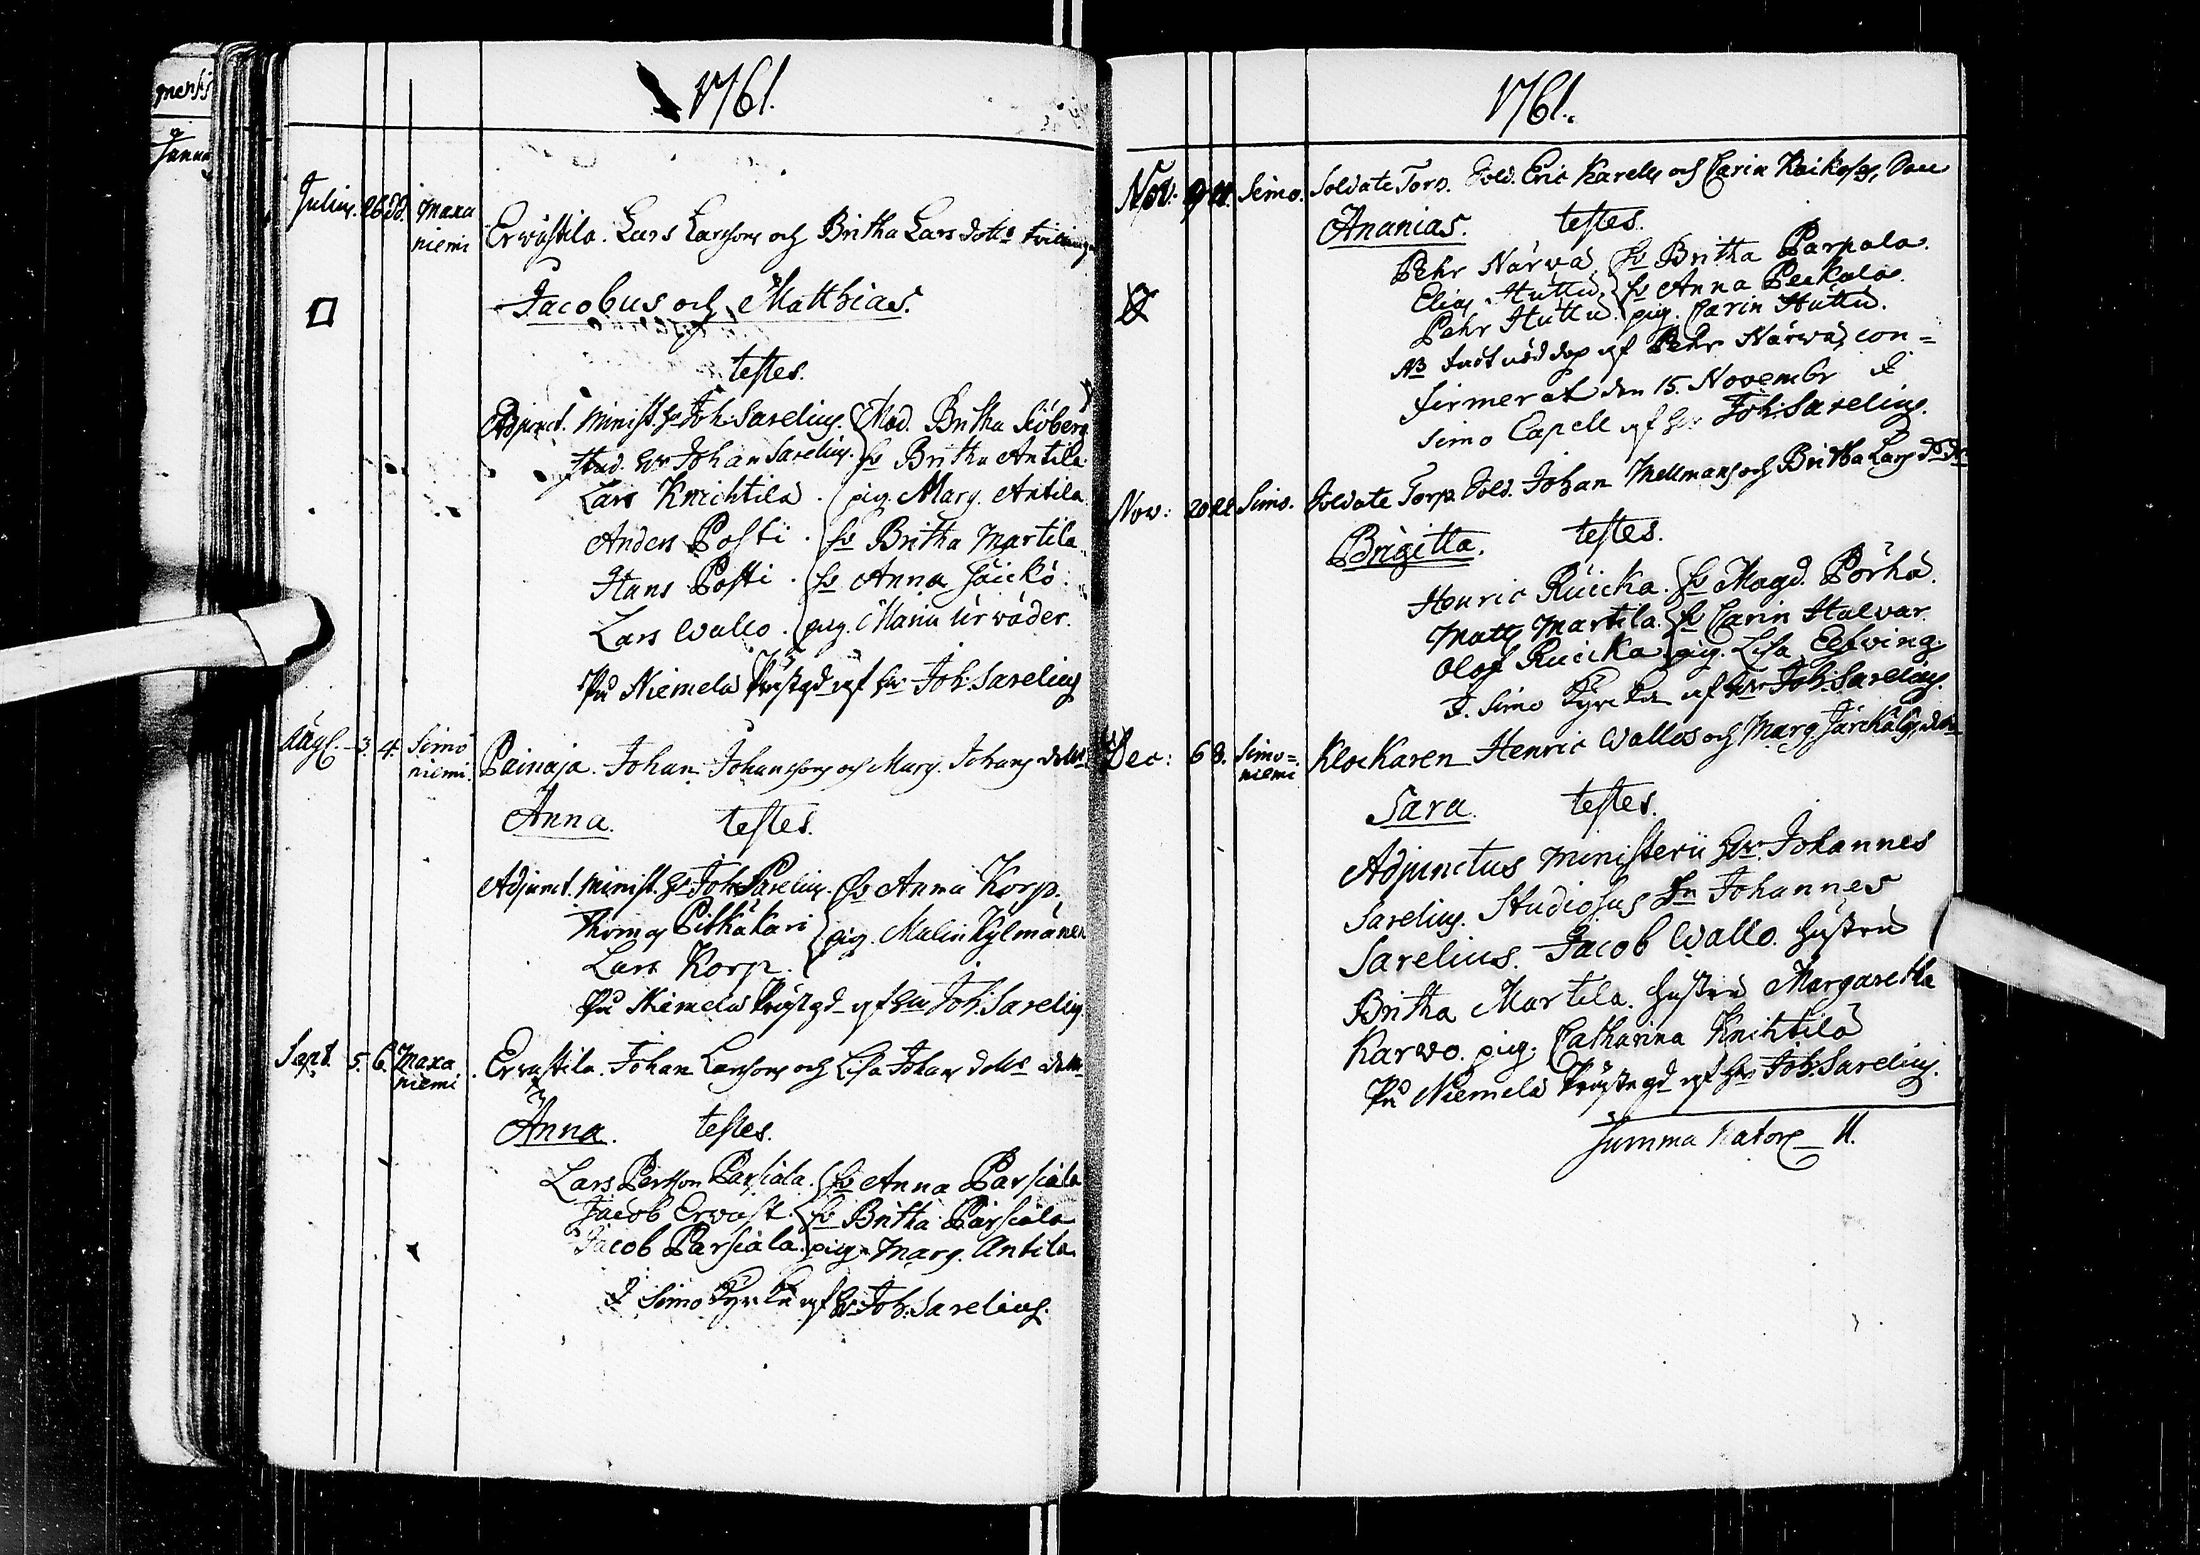 1761.
Julius. 26 Maxa
niemi Erwastila. Lars Larssons och Britha Lars dotts tvillingar
Jacobus och Matthias.
testes.
Adjunct. Minist. Hr Joh. Sarelius. Mad. Britha Siöberg
Stud. Hr Johan Sarelius. hu Britha Antila
Lars Knichtila. pig. Marg. Antila
Anders Posti. hu Britha Martila.
Hans Posti. hu Anna
Lars Wallo. pig. Maria
På Niemelä Prästgd af Hr Joh. Sarelius
Aug. 3. 4. Simo
niemi. Painaja. Johan Johanssons och Marg. Johans dotts
Anna. testes.
Adjunct. Minist. Hr Joh. Sarelius. hu Anna Korp.
Thomas Pitkäkari pig. Malin Kylmänen
Lars Korp.
På Niemelä Prästgd af Hr Joh. Sarelius
Sept. 5. 6. Maxa
niemi. Erwastila. Johan Larssons och Lisa Johans dotts
Anna. testes.
Lars Persson Parsiala. hu Anna Parsiala
Jacob Erwast. hu Britha Parsiala
Jacob Parsiala. pig. Marg. Antila.
I Simo Kyrka af Hr Joh. Sarelius.
1761.
Nov: 9 11. Simo. Soldate Torp. Sold. Eric Karells och Carin
Ananias. testes.
Pehr Närwä. hu Britha Parpala.
Elias Huttu. hu Anna Peckala.
Pehr Huttu. pig. Carin Huttu.
NB af Pehr Närwä, con=
firmerat den 15. Novembr I
Simo Capell af Hr Joh. Sarelius.
Nov: 20 22 Simo. Soldate Torp. Sold. Johan Mellmans och Britha Lars
Brigitta. testes.
Henric Ruicka. hu Magd. Pörhä.
Matts Martila. hu Carin Halvar.
Olof Ruicka. pig. Lisa Elfving.
I. Simo Kyrka af Hr Joh. Sarelius.
Dec: 6 8. Simo=
niemi Klockaren Henric Wallos och Marg.
Sara. testes.
Adjunctus Ministerii Hr. Johannes
Sarelius. Studiosus Hr Johannes
Sarelius. Jacob Wallo. Hustru
Britha Martila. Hustru Margaretha
Karwo. pig. Catharina Knihtilä
På Niemelä Prästegd af Hr Joh. Sarelius.
Summa Nator 11.